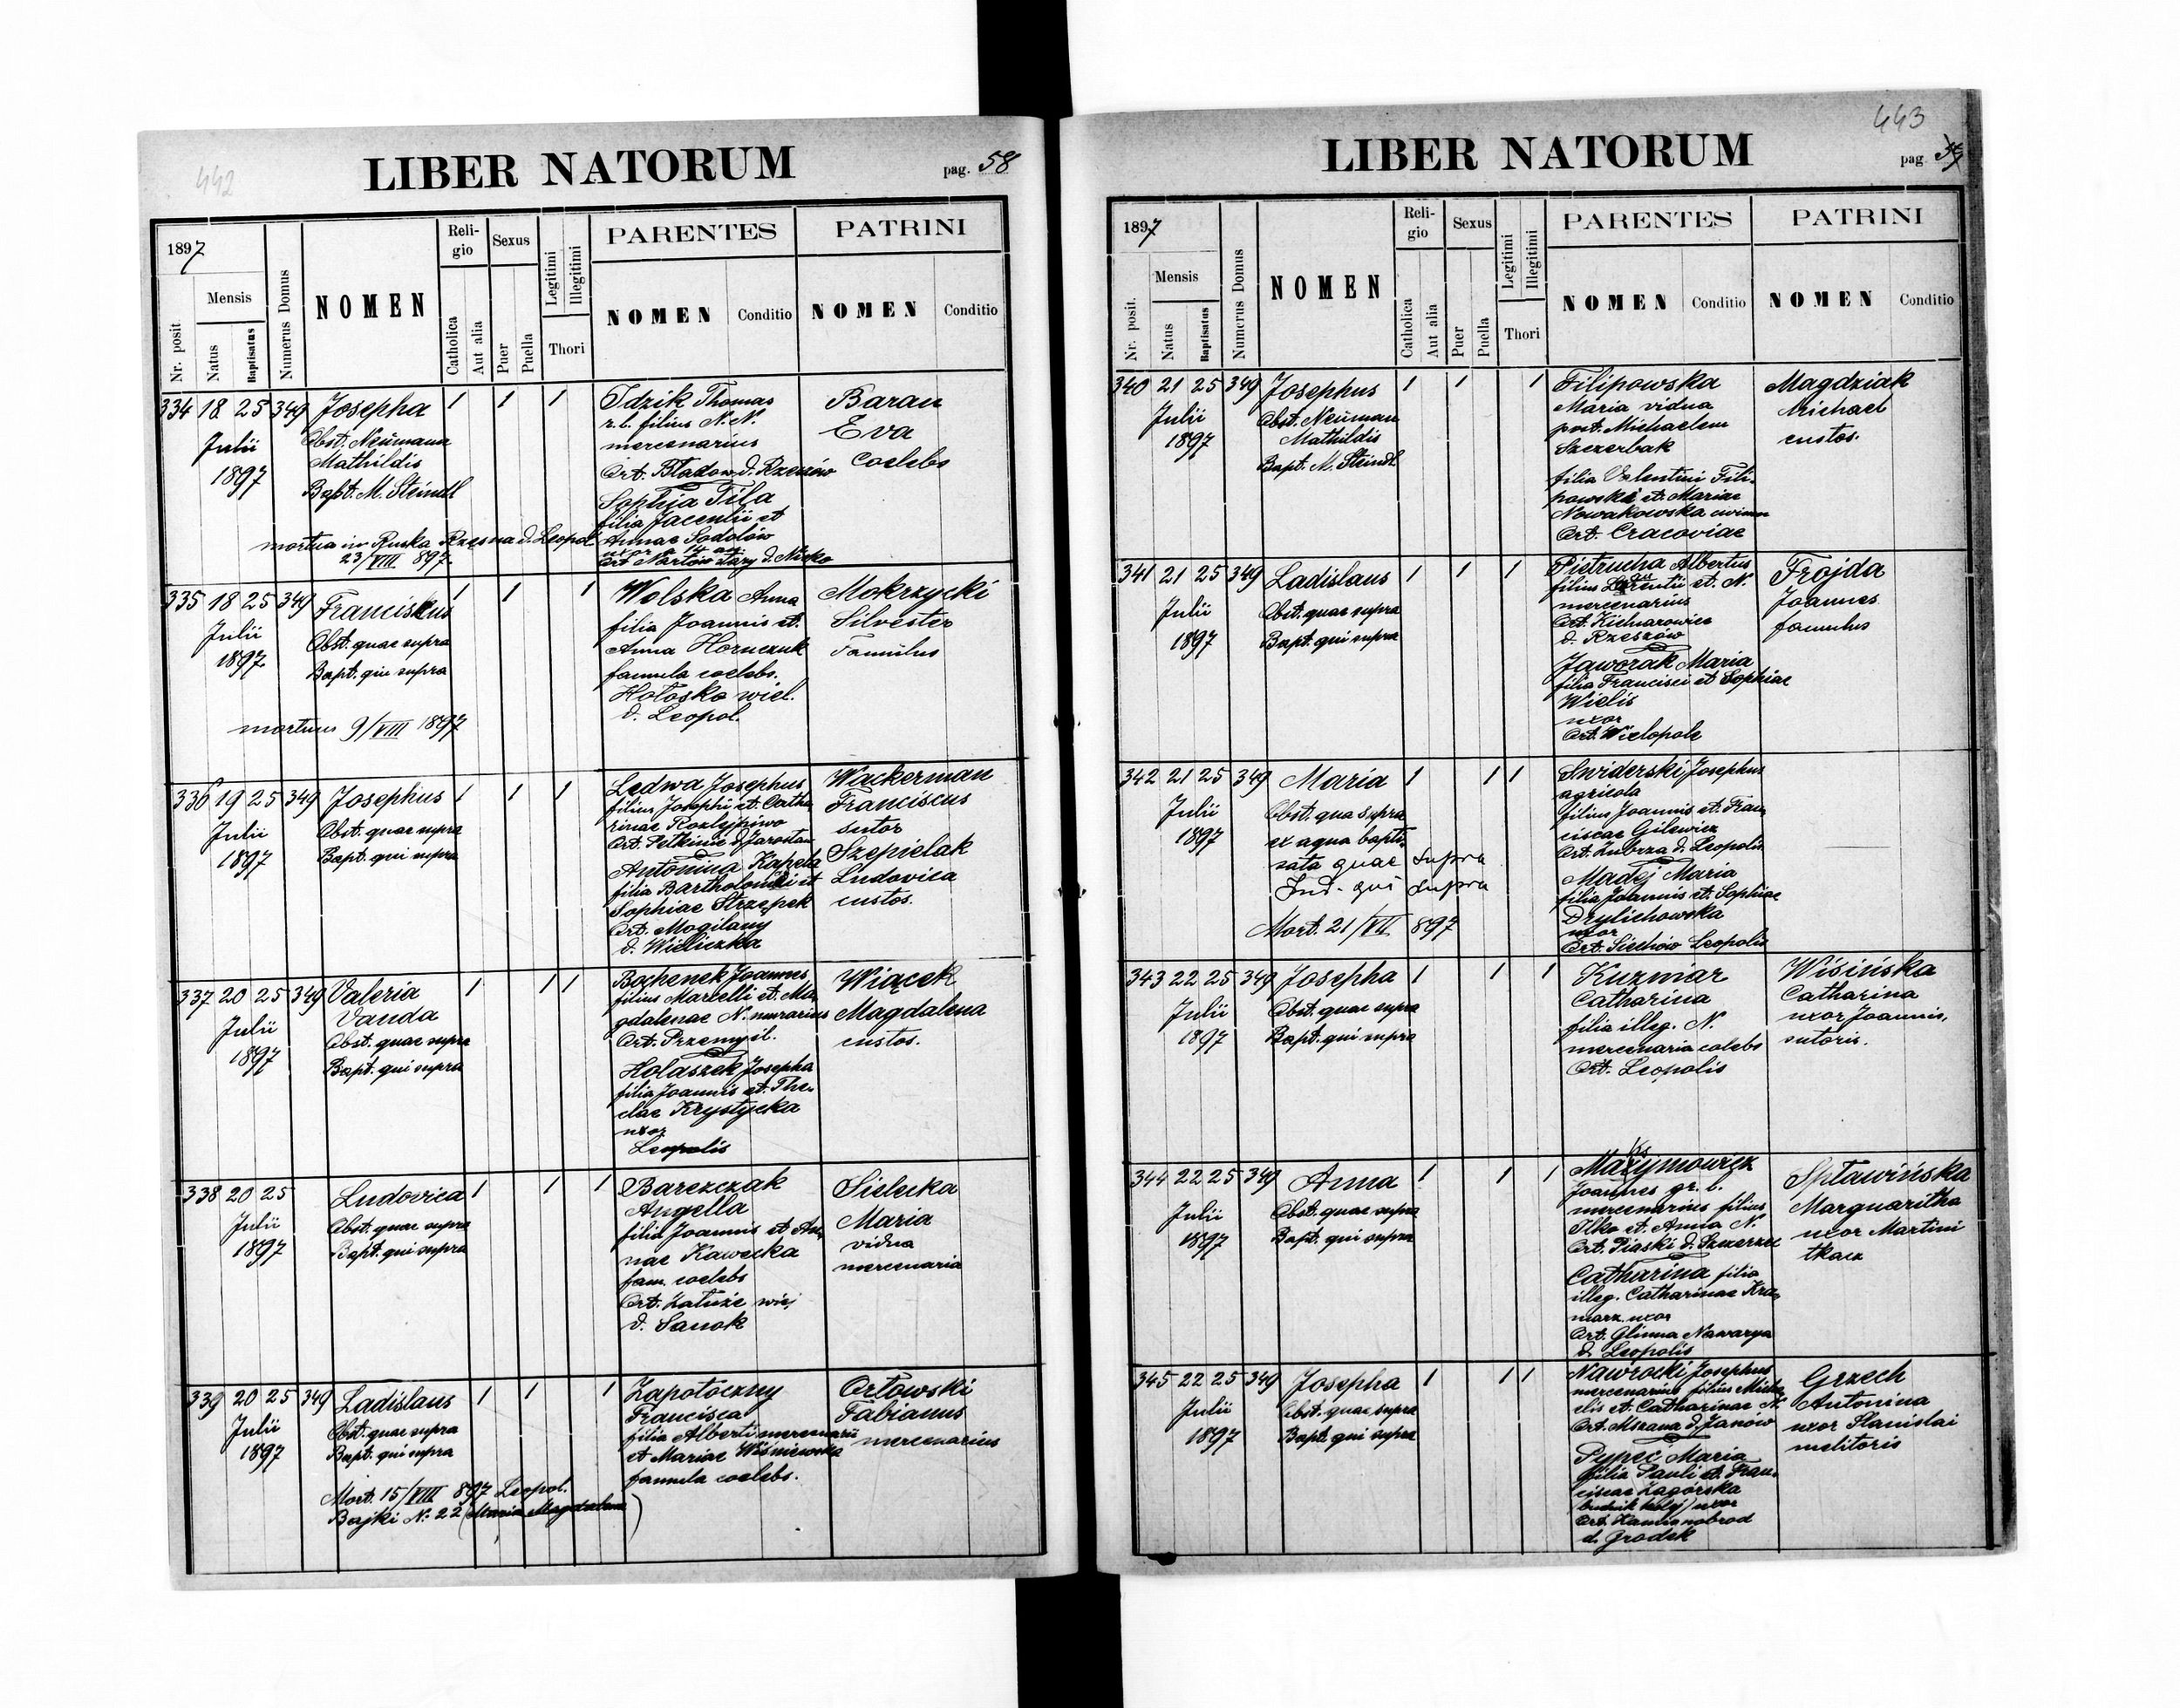 442
LIBER NATORUM
pag. 58
1897
Nr. posit.
Mensis
Natus
Baptisatus
Numerus Domus
NOMEN
Reli-
gio
Catholica
Aut alia
Sexus
Puer
Puella
Legitimi
Illegitimi
Thori
PARENTES
NOMEN
Conditio
PATRINI
NOMEN
Conditio
334 18 25 349 Josepha 1 1 1
Julii
1897
Obst. Neümann
Mathildis
Bapt. M. Steindl
mortua in Ruska Rzęsna d. Leopol
23/VIII 897.
Idzik Thomas
r. l. filius N. N.
mercenarius
Ort. Bladow d. Rzeszów
Sophja Fila
filia Jacentii et
Annae Sodolów
Ort Nartów stary d. Nisko
Baran
Eva
Coelebs
335 18 25 349 Franciskus 1 1 1
Julii
1897
Obst. quae supra
Bapt. qui supra
mortuus 9/VIII 1897
Wolska Anna
filia Joannis et.
Anna Hornczuk
famula coelebs.
Hołosko wiel.
d. Leopol.
Mokrzycki
Silvester
Famulus
336 19 25 349 Josephus 1 1 1
Julii
1897
Obst. quae supra
Bapt. qui supra
Ledwa Josephus
filius Josephi et. Catha
rinae
Ort. Pełkinie d. Jarosłau
Antonina Kapela
filia Bartholomei et
Sophiae Strzępek
Ort. Mogilany
d. Wieliczka
Wackerman
Franciscus
sutor
Szepielak
Ludovica
custos.
337 20 25 349 Valeria 1 1 1
Vanda
Julii
1897
Obst. quae supra
Bapt. qui supra
Bochenek Joannes
filius Marcelli et. Ma
gdalenae N. murarius
Ort. Przemysl.
Holaszek Josepha
filia Joannis et. The
clae Krystycka
uxor
Leopolis
Wiącek
Magdalena
custos.
338 20 25 Ludovica 1 1 1
Julii
1897
Obst. quae supra
Bapt. qui supra
Barczczak
Angella
filia Joannis et An
nae Kawecka
fam. coelebs
Ort. Załuże wiej
d. Sanok
Sielecka
Maria
vidua
mercenaria
339 20 25 349 Ladislaus 1 1 1
Julii
1897
Obst. quae supra
Bapt. qui supra
Mort. 15/VIII 897 Leopol.
Bajki N. 22 (Maria Magdalena)
Zapotoczny
Francisca
filia Alberti mercenarii
et Mariae Wiśniewska
famula coelebs.
Orłowski
Fabianus
mercenarius
443
LIBER NATORUM
pag.
1897
Nr. posit.
Mensis
Natus
Baptisatus
Numerus Domus
NOMEN
Reli-
gio
Catholica
Aut alia
Sexus
Puer
Puella
Legitimi
Illegitimi
Thori
PARENTES
NOMEN
Conditio
PATRINI
NOMEN
Conditio
340 21 25 349 Josephus 1 1 1
Julii
1897
Obst. Neüman
Mathildis
Bapt. M. Steindl
Filipowska
Maria vidua
post. Michaelem
Szczerbak
filia Valentini Fili
powski et. Mariae
Nowakowska
Ort. Cracoviae
Magdziak
Michael
custos.
341 21 25 349 Ladislaus 1 1 1
Julii
1897
Obst. quae supra
Bapt. qui supra
Pietrucha Albertus
filius et. N.
mercenarius
Ort. Kielnarowice
d. Rzeszów
Jaworak Maria
filia Francisci et Sophiae
Wielis
uxor
Ort. Wielopole
Frojda
Joannes
famulus
342 21 25 349 Maria 1 1 1
Julii
1897
Obst. qua supra
ex aqua bapti
sata quae supra
Ind. qui supra
Mort. 21/VII 897
Swiderski Josephus
agricola
filius Joannis et. Fran
ciscae Gilewicz
Ort. Zubrza d. Leopolis
Madej Maria
filia Joannis et. Sophiae
Drylichowska
uxor
Ort. Siechów Leopolis
343 22 25 349 Josepha 1 1 1
Julii
1897
Obst. quae supra
Bapt. qui supra
Kuzniar
Catharina
filia illeg. N.
mercenaria colebs
Ort. Leopolis
Wisińska
Catharina
uxor Joannis,
sutoris.
344 22 25 349 Anna 1 1 1
Julii
1897
Obst. quae supra
Bapt. qui supra
Joannes gr. l.
mercenarius filius
Ilko et. Anna N.
Ort. Piaski d. Szczerzec
Catharina filia
illeg. Catharinae Kra
marz. uxor
Ort. Glinna Nawarya
d. Leopolis
Spławińska
Marguaritha
uxor Martini
tkacz
345 22 25 349 Josepha 1 1 1
Julii
1897
Obst. quae supra
Bapt. qui supra
Nawrocki Josephus
mercenarius filius Micha
elis et. Catharinae N.
Ort. Mszana d. Janów
Pypeć Maria
filia Pauli et. Fran
ciscae Zagórska
uxor
Ort. Kamianobrod
d. Grodek
Grzech
Antonina
uxor Stanislai
melitoris